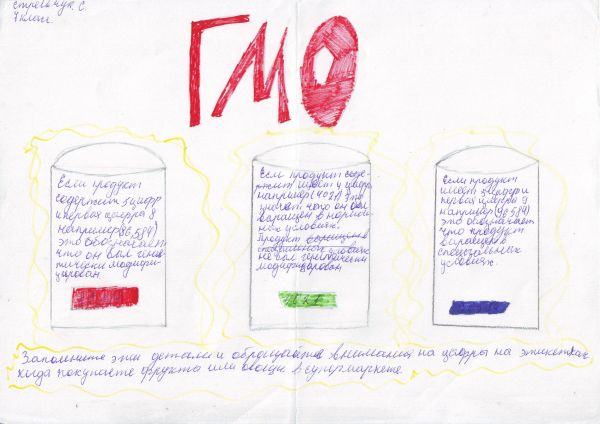 Стрельчук. С.
7 класс.
ГМО
Если продукт
содержит 5 цифр
и первая цифры 8
например(86,514)
это обозначает
что он был гене-
тически модифи-
цирован
Если продукт соде-
ржит 4 цифр
например(4021) это
значит что он был
выращен в нормаль-
ных условиях.
Продукт выращенна
не был генетически
модифицирован
Если продукт
имеет 5 цифр и
первая цифры 9
например(96,514)
это обозначает
что продукт
выращен в
специальных
условиях.
Запомните эти детали и обращайте внимания на цифры на этикетках,
когда покупаете фрукты или овощи в супермаркете.